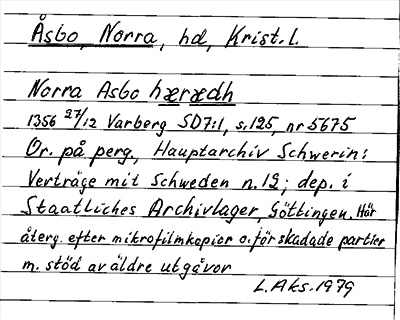 Åsbo, Norra, hd, Krist. l.
Norra Asbo hærædh
1356 27/12 Varberg SD7:1, s. 125, nr 5675
Or. på perg., Hauptarchiv Schwerin:
Verträge mit Schweden n. 12; dep. i
Staatliches Archivlager, Göttingen. Här
återg. efter mikrofilmkopior o. för skadade partier
m. stöd av äldre utgåvor
L. Aks. 1979